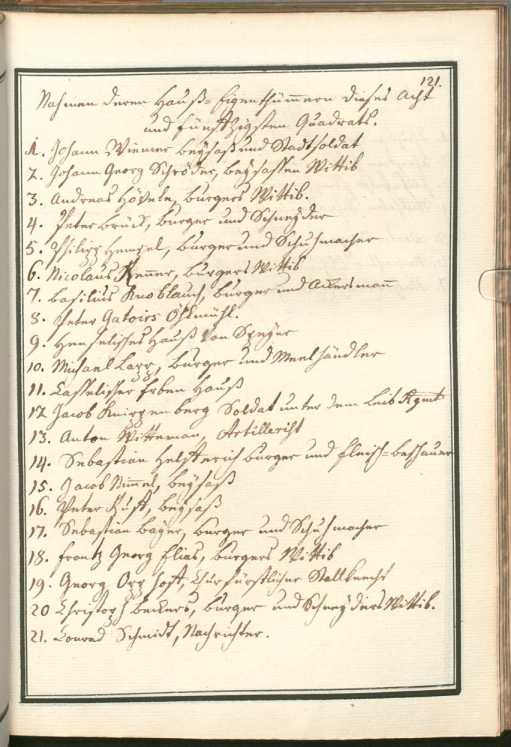 121.
Nahmen deren Hauß-Eigenthümmern dieses Acht
und fünfftzigsten Quadrats.
1. Johann Wiemer beysaß und Stadtsoldat
2. Johann Georg Schröder, beysassen Wittib
3. Andreas Hövele, burgers Wittib.
4. Peter Brück, burger und Schneyder
5. Philipp Hentzel, burger und Schuhmacher
6. Nicolaus Renner, burgers Wittib
7. Basilius Knoblauch, burger und Ackersmann
8. Peter Gatoirs Öhlmühl.
9. Hauß von Speyer
10. Michael Lapp, burger und Meelhändler
11. Erben Hauß
12 Jacob Knippenberg Soldat unter dem Leib Rgmt
13. Anton Witteman, Artillerist
14. Sebastian Helfferich burger und fleisch-beschauer
15. Jacob Nimmel, beysaß
16. Peter Rust, beysaß
17. Sebastian Bayer, burger und Schuhmacher
18. Frantz Georg Elias, burgers Wittib
19. Georg Opp Hoff, Churfürstlicher Stallknecht
20 Christoph Beckers, burger und Schneyders Wittib.
21. Conrad Schmidt, Nachrichter.